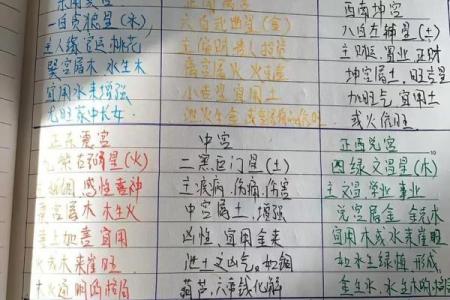 一白贪狼星(水)
主人缘官运桃花
巽宫属木 水生木
宜用水来增强
六白武曲星(金)
离宫属火 火克金
西南坤宫
八白左辅星(土)
主财运、置业、正财
坤宫属土,旺
加旺气,宜用土
或火催旺
正东震宫
九紫右弼星(火)
感性喜神
震宫属木 木生火
宜用
催旺
中宫
二黑巨门星(土)
主疾病、伤痛、伤害
中宫属土,增强
凶性,宜用金来
泄土之凶气。如铜
葫芦、六帝钱化解
正西兑宫
四绿文昌星(木)
主文昌、学业、事业
兑宫属金 金克木
宜用木或水来催旺
如水生绿植,形成
金生水,水生木的格局